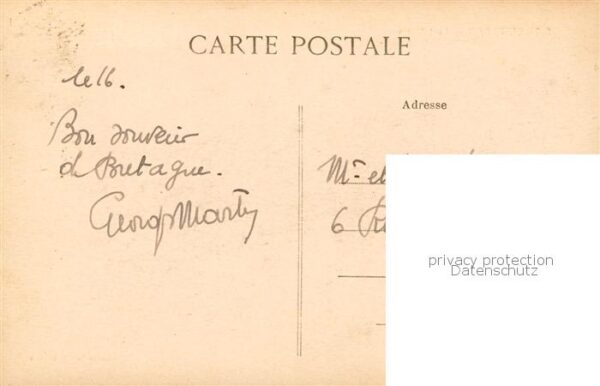 CARTE POSTALE
le 16.
Adresse
Bon souvenir
de Bretagne.
Georges Marty
Mr et
6
privacy protection
Datenschutz